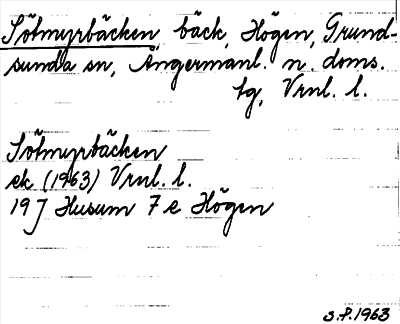 Sötmyrbäcken, bäck, Högen, Grund-
sunda sn, Ångermanl. n. doms.
tg, Vrnl. l.
Sötmyrbäcken
ek (1963) Vrnl. l.
19 J Husum 7 e Högen
S.F. 1963